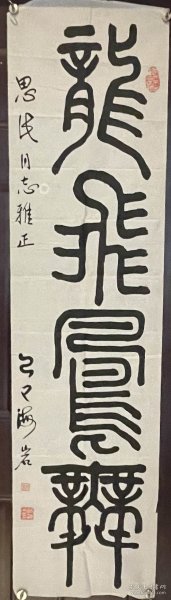 龍飛鳳舞
思浅同志雅正
海岩